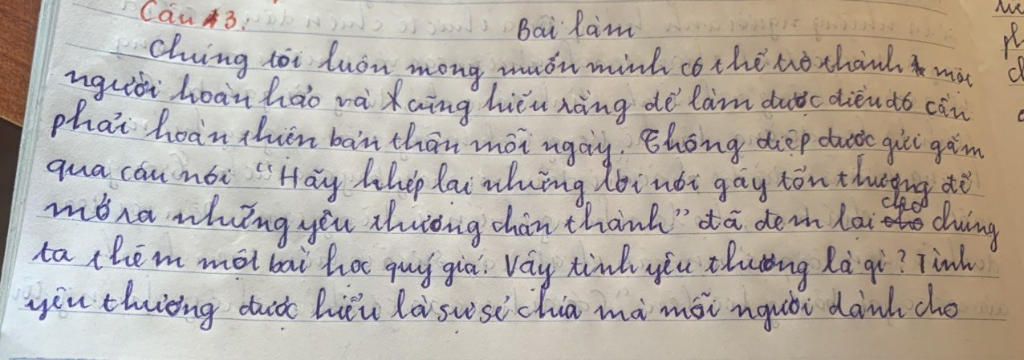 Câu 3.
Bài làm
Chúng tôi luôn mong muốn mình có thể trở thành một
người hoàn hảo và cũng hiểu rằng để làm được điều đó cần
phải hoàn thiện bản thân mỗi ngày. Thông điệp được gửi gắm
qua câu nói "Hãy khép lại những lời nói gây tổn thương để
mở ra những yêu thương chân thành" đã đem lại cho chúng
ta thêm một bài học quý giá. Vậy tình yêu thương là gì? Tình
yêu thương được hiểu là sự sẻ chia mà mỗi người dành cho